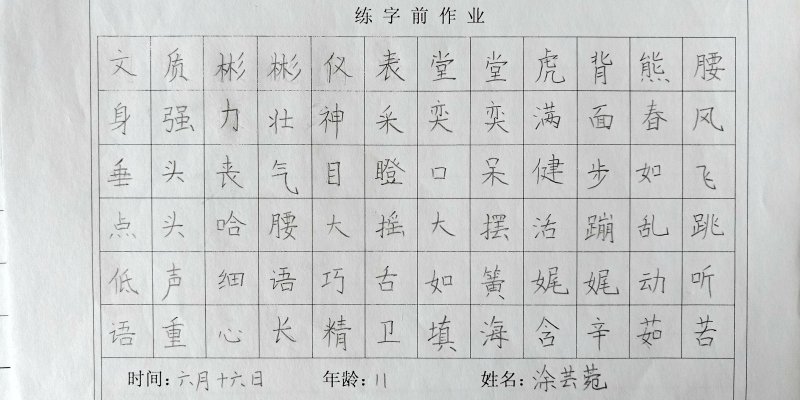 练字前作业
文质彬彬仪表堂堂虎背熊腰
身强力壮神采奕奕满面春风
垂头丧气目瞪口呆健步如飞
点头哈腰大摇大摆活蹦乱跳
低声细语巧舌如簧娓娓动听
语重心长精卫填海含辛茹苦
时间:六月十六日 年龄:11 姓名:涂芸菀